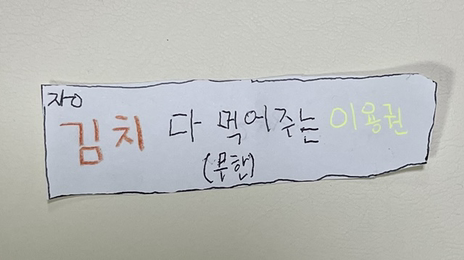 김치 다 먹어주는 이용권
(무한)